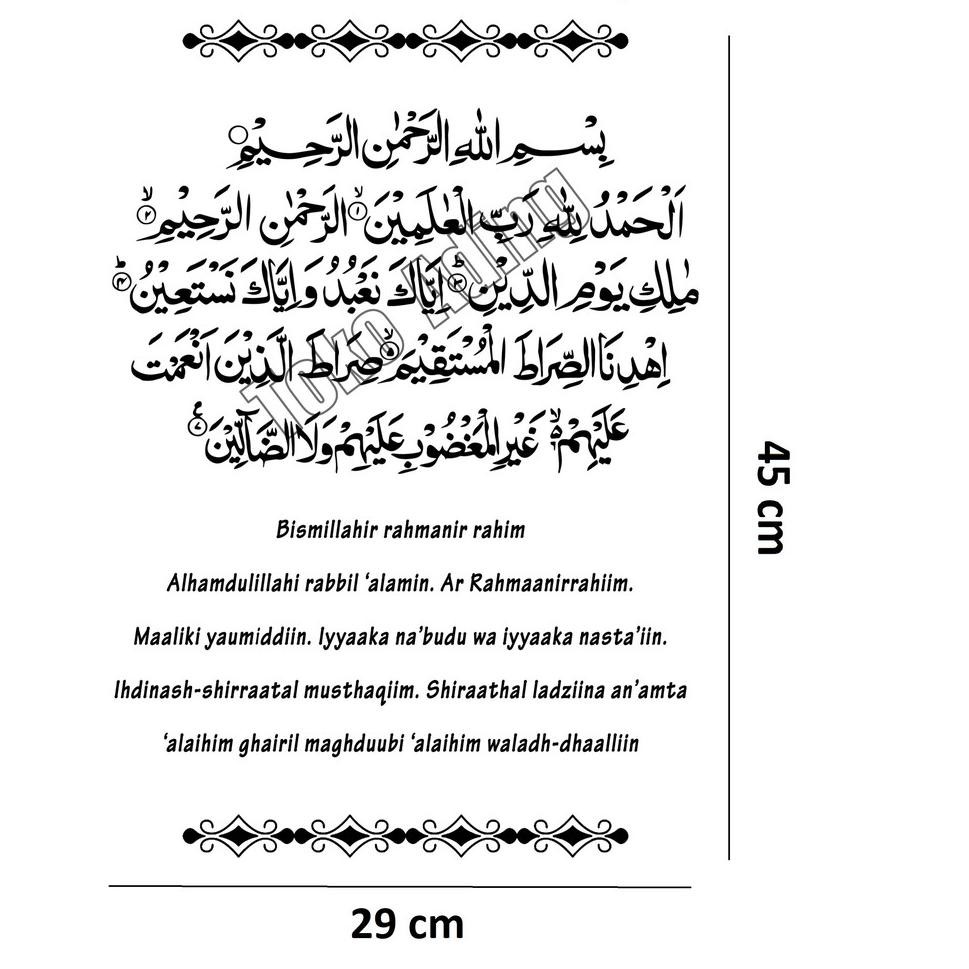 بِسْمِ اللهِ الرَّحْمٰنِ الرَّحِيْمِ
اَلْحَمْدُ لِلّٰهِ رَبِّ الْعٰلَمِيْنَۙ ١ الرَّحْمٰنِ الرَّحِيْمِۙ ٢
مٰلِكِ يَوْمِ الدِّيْنِۗ ٣ اِيَّاكَ نَعْبُدُ وَاِيَّاكَ نَسْتَعِيْنُۗ ٤
اِهْدِنَا الصِّرَاطَ الْمُسْتَقِيْمَۙ ٥ صِرَاطَ الَّذِيْنَ اَنْعَمْتَ
عَلَيْهِمْ ەۙ غَيْرِ الْمَغْضُوْبِ عَلَيْهِمْ وَلَا الضَّاۤلِّيْنَ ࣖ ٧
Toko Ading
Bismillahir rahmanir rahim
Alhamdulillahi rabbil ‘alamin. Ar Rahmaanirrahiim.
Maaliki yaumiddiin. Iyyaaka na’budu wa iyyaaka nasta’iin.
Ihdinash-shirraatal musthaqiim. Shiraathal ladziina an’amta
‘alaihim ghairil maghduubi ‘alaihim waladh-dhaalliin
45 cm
29 cm